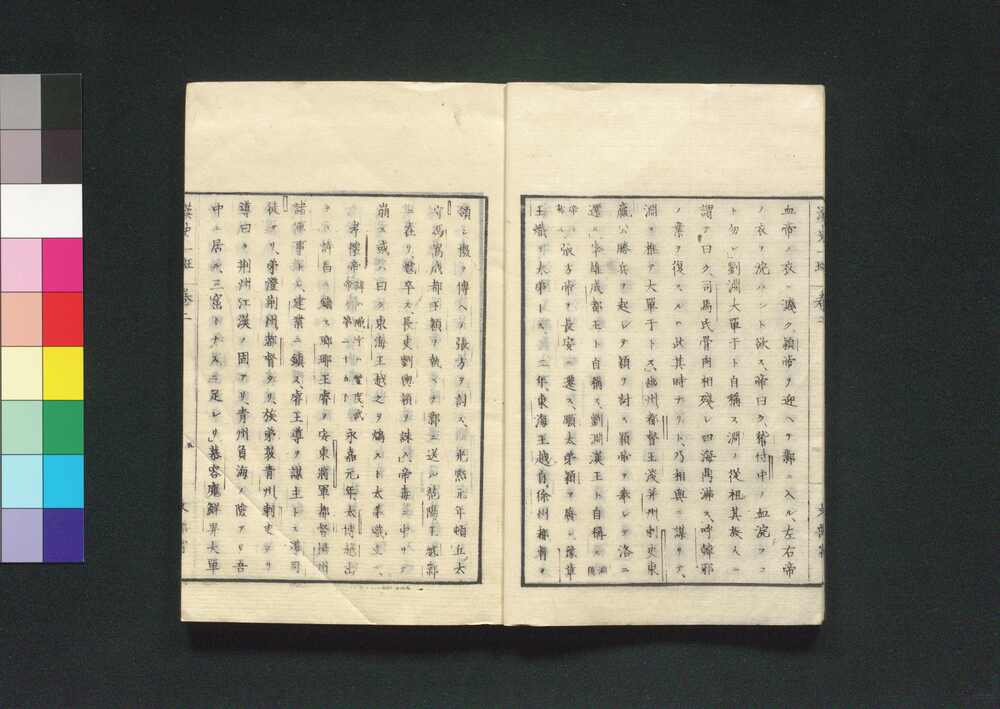 漢史一班 巻二
血帝ノ衣ニ濺ク、穎帝ヲ迎ヘテ鄴ニ入ル、左右帝
ノ衣ヲ浣ハント欲ス、帝曰ク、嵇侍中ノ血浣フコ
ト勿レ、劉淵大單于ト自稱ス、淵ノ從祖其族人ニ
謂テ曰ク、司馬氏骨肉相殘シ四海鼎沸ス、呼韓邪
ノ業ヲ復スルハ此其時ナリト、乃相與ニ謀リテ、
淵ヲ推テ大單于トス、幽州都督王浚并州刺史東
嬴公騰兵ヲ起シテ穎ヲ討ス、穎帝ヲ奉シテ洛ニ
還ル、李雄成都王ト自稱ス、劉淵漢王ト自稱ス
張方帝ヲ長安ニ遷ス、顒太弟穎ヲ廢シ豫章
王熾ヲ太弟トス、二年、東海王越自徐州都督ヲ
領シ檄ヲ傳ヘテ張方ヲ討ス、光熙元年頓丘太
守馮嵩成都王穎ヲ執ヘテ鄴ニ送ル、范陽王虓鄴
ニ在リ、虓卒ス、長史劉輿穎ヲ誅ス、帝毒ニ中リテ
崩ス、或ハ曰ク、東海王越之ヲ鴆スト、太弟熾立ツ、
孝懷帝 永嘉元年太傅越出
テ許昌ニ鎮ス、瑯琊王睿ヲ安東將軍都督揚州
諸軍事トス、建業ニ鎮ス、睿王導ヲ謀主トス、導司
徒タリ、弟澄荊州都督タリ、族弟敦青州刺史タリ
導曰ク、荊州江漢ノ固アリ、青州負海ノ險アリ、吾
中ニ居ル、三窟トナスニ足レリ、慕容廆鮮卑大單
漢史一班 巻二